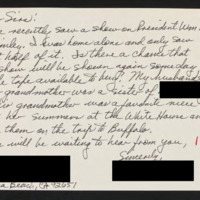 Sirs:
recently saw a show on President Wm
Kinley. I was home alone and only saw
half of it. Is there a chance that
show will be shown again someday
tape available to buy? My husband's
grandmother was a sister of
grandmother was a favorite niece
her summers at the White House an
them on the trip to Buffalo.
will be waiting to hear from you,
Sincerely,
Beach, CA 92651